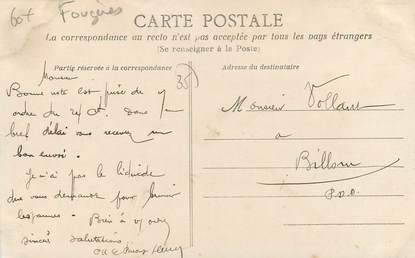 Fougères
CARTE POSTALE
La correspondance au recto n'est pas acceptée par tous les pays étrangers
(Se renseigner à la Poste)
Partie réservée à la correspondance
Adresse du destinataire
35
Monsieur
Bonne note est prise de
ordre du 24 ct. Dans un
bref délai vous recevrez un
bon envoi.
Je n'ai pas le liquide
que vous demandez pour
les jaunes. Bien à
sincères salutations
Monsieur Vollant
a
Billom
P.D.D.